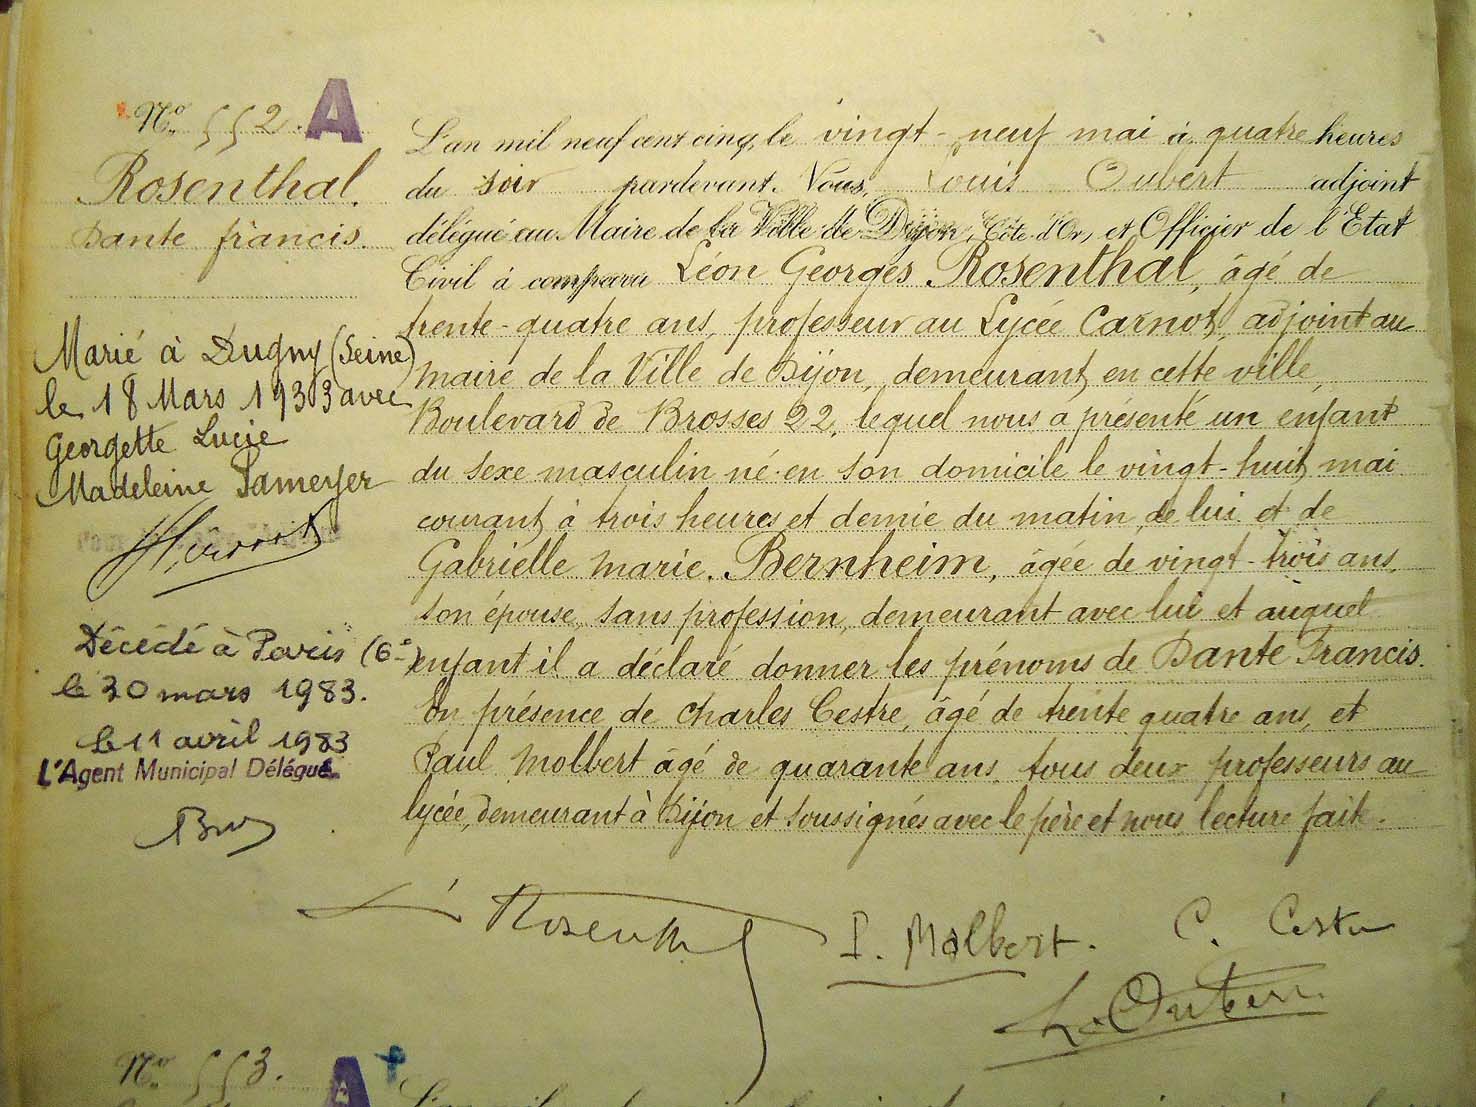 Nº 552. A
Rosenthal.
Dante francis.
Marié à Dugny (Seine)
le 18 Mars 1933 avec
Georgette Lucie
Madeleine Pameyer
Décédé à Paris (6e)
le 20 mars 1983.
Le 11 avril 1983
L'Agent Municipal Délégué
L'an mil neuf cent cinq, le vingt-neuf mai à quatre heures
du soir pardevant Nous, Louis Oubert adjoint
délégué au Maire de la Ville de Dijon, Côte d'Or, et Officier de l'Etat
Civil à comparu Léon Georges Rosenthal, âgé de
trente-quatre ans, professeur au Lycée Carnot, adjoint au
maire de la Ville de Dijon, demeurant en cette ville,
Boulevard de Brosses 22, lequel nous a présenté un enfant
du sexe masculin né en son domicile le vingt-huit mai
courant à trois heures et demie du matin, de lui et de
Gabrielle Marie Bernheim, âgée de vingt-trois ans,
son épouse, sans profession, demeurant avec lui et auquel
enfant il a déclaré donner les prénoms de Dante Francis.
En présence de Charles Cestre, âgé de trente quatre ans, et
Paul Molbert âgé de quarante ans, tous deux professeurs au
lycée, demeurant à Dijon et soussignés avec le père et nous, lecture faite.
L Rosenthal
P. Molbert. C. Cestre
L. Oubert.
Nº 553. A